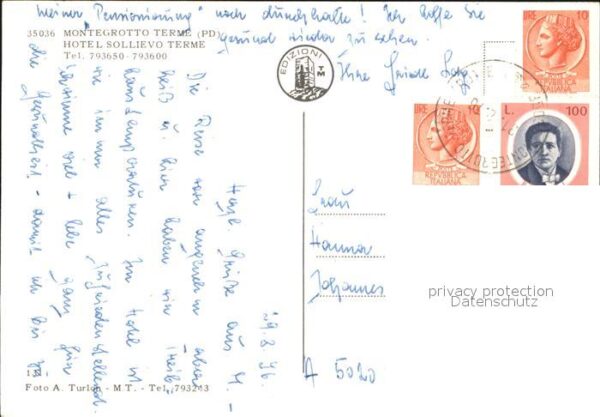 35036 MONTEGROTTO TERME (PD)
HOTEL SOLLIEVO TERME
Tel. 793650 - 793600
EDIZIONI
TM
LIRE 10
REPVBBLICA
ITALIANA
LIRE 10
REPVBBLICA
ITALIANA
L. 100
29.8.76
Herzl. Grüße aus M. -
Die Reise war angenehm, aber
heiß u. hier haben wir
Im Hotel ist
wie immer alles
zufriedenstellend.
viel + lebe ganz für
die Gesundheit - damit ich bis zu
meiner "Pensionierung" noch durchhalte! Ich hoffe Sie
gesund wieder zu sehen.
Ihre
Frau
Hanna
Johannes
A 5020
privacy protection
Datenschutz
Foto A. Turlon - M.T. - Tel. 793243